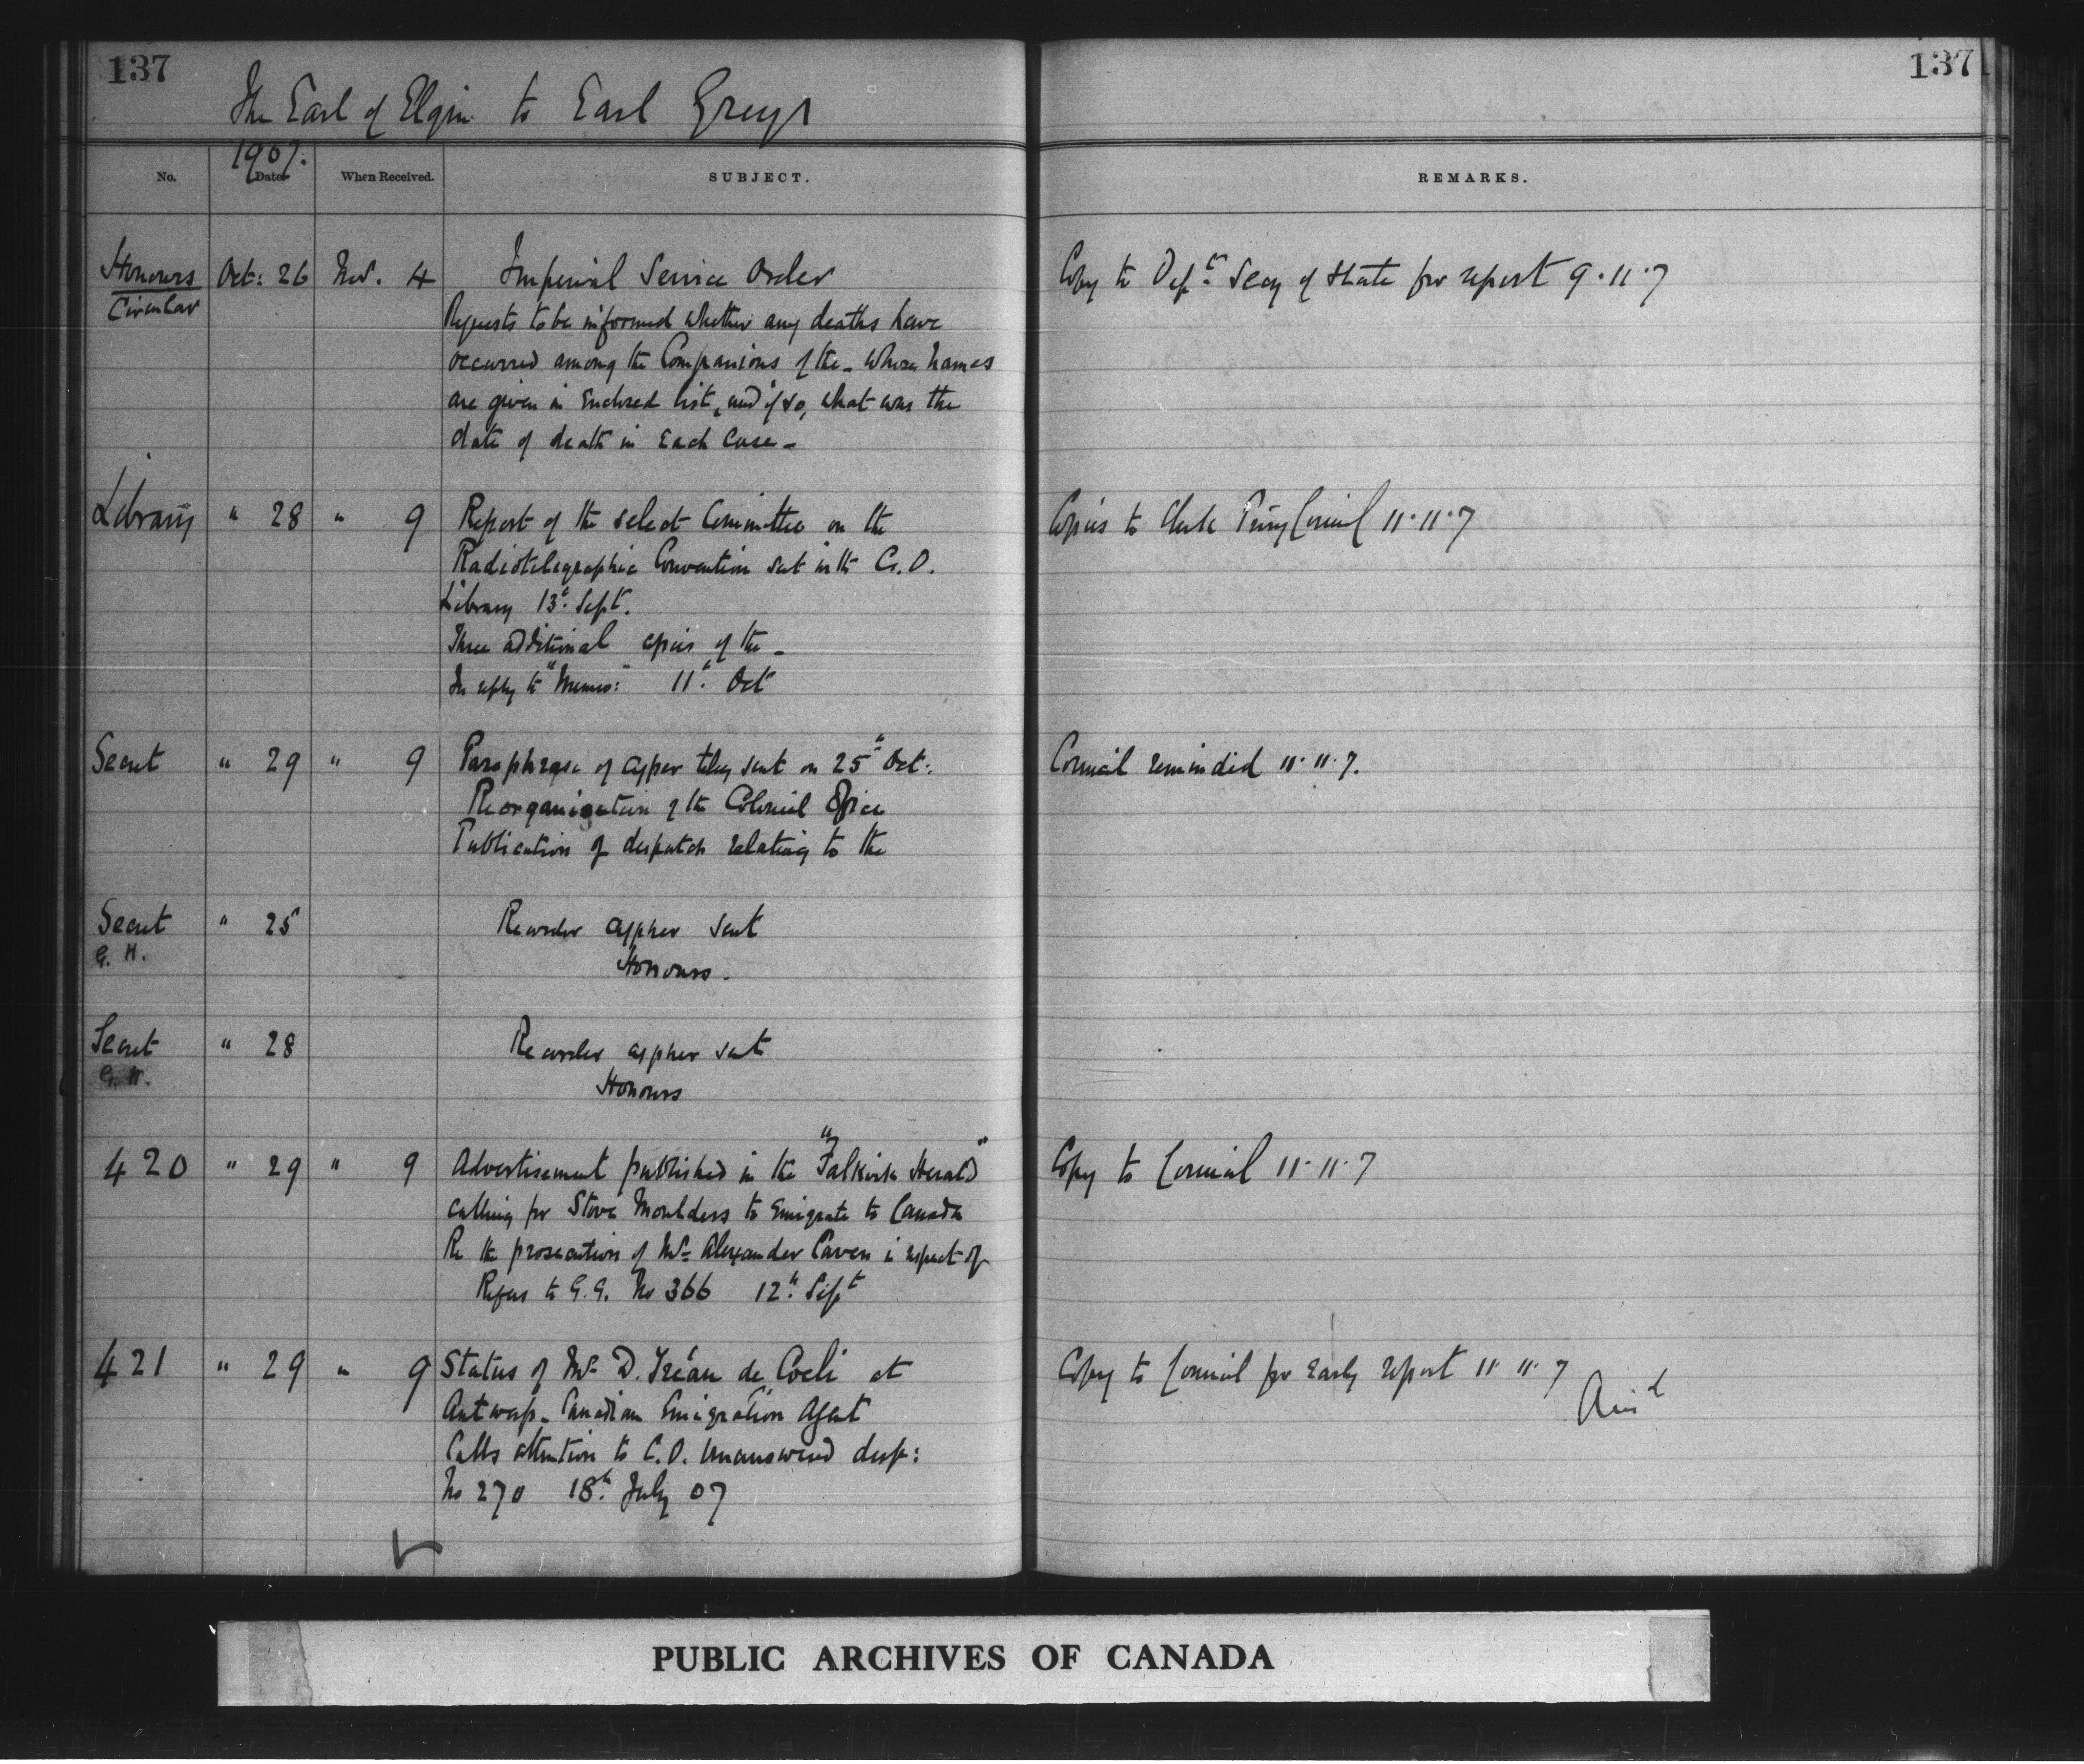 137
137
The Earl of Elgin to Earl Grey
1907.
No. Date When Received. SUBJECT. REMARKS.
Honours Oct: 26 Nov. 4 Imperial Service Order Copy to Depᵗ Secy of State for report 9.11.7
Circular
Requests to be informed whether any deaths have
occurred among the Companions of the - whose names
are given in Enclosed list, and if so, what was the
date of death in Each Case -
Library " 28 " 9 Report of the select Committee on the Copies to Clerk Privy Council 11.11.7
Radiotelegraphic Convention sent in the C.O.
Library 13ᵗʰ Sept.
Three additional copies of the -
In reply to "Memo:" 11ᵗʰ Oct
Secret " 29 " 9 Paraphrase of cypher teleg sent on 25ᵗʰ Oct: Council reminded 11.11.7.
Reorganization of the Colonial Office
Publication of despatch relating to the
Secret " 25 Recorder cypher sent
G.H. Honours.
Secret " 28 Recorder cypher sent
G.H. Honours
420 " 29 " 9 Advertisement published in the "Falkirk Herald" Copy to Council 11.11.7
calling for Stove Moulders to Emigrate to Canada
Re the prosecution of Mr. Alexander Caven in respect of
Refers to G.G. No 366 12ᵗʰ Sepᵗ
421 " 29 " 9 Status of Mr. D. Tréau de Coeli at Copy to Council for Early report 11.11.7
Antwerp - Canadian Emigration Agent Ansᵈ
Calls attention to C.O. Unanswered desp:
No 270 18ᵗʰ July 07
PUBLIC ARCHIVES OF CANADA